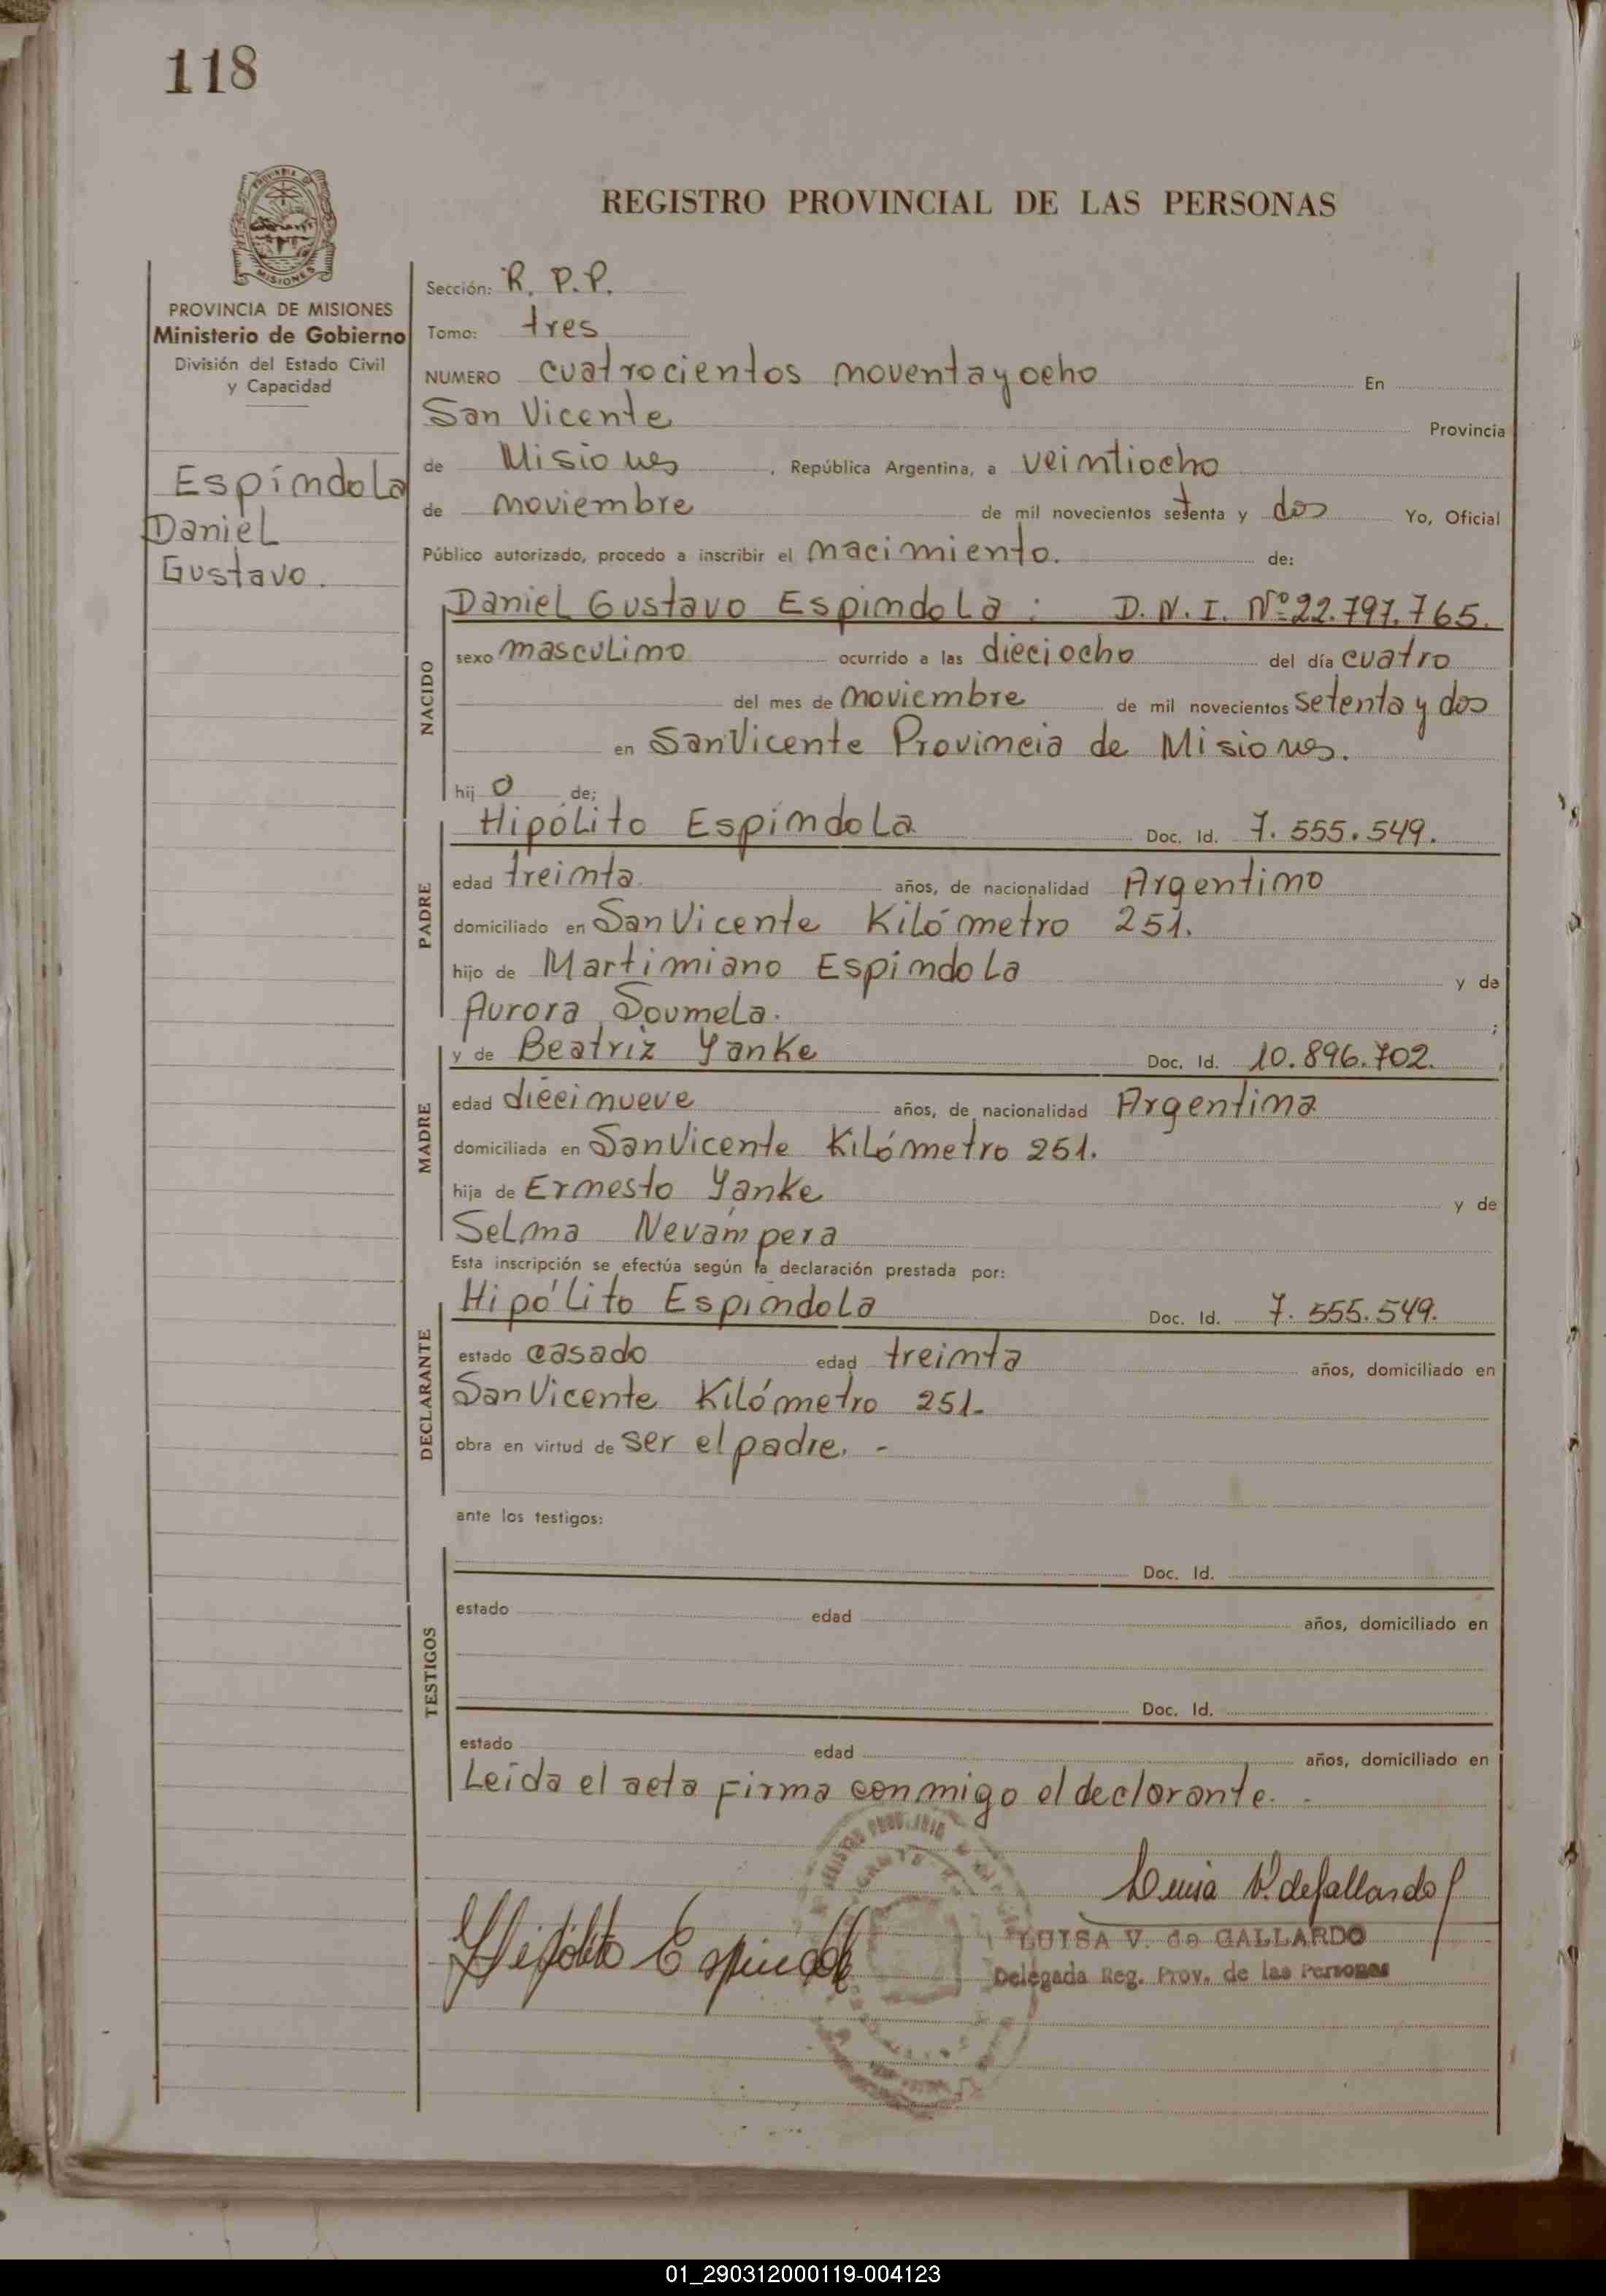 118
REGISTRO PROVINCIAL DE LAS PERSONAS
MISIONES
PROVINCIA DE MISIONES
Ministerio de Gobierno
División del Estado Civil
y Capacidad
Espíndola
Daniel
Gustavo.
Sección: R. P.P.
Tomo: tres
NUMERO cuatrocientos noventa y ocho En
San Vicente Provincia
de Misiones, República Argentina, a veintiocho
de noviembre de mil novecientos setenta y dos Yo, Oficial
Público autorizado, procedo a inscribir el nacimiento. de:
NACIDO
Daniel Gustavo Espíndola: D.N.I. Nº 22.797.765.
sexo masculino ocurrido a las dieciocho del día cuatro
del mes de noviembre de mil novecientos setenta y dos
en San Vicente Provincia de Misiones.
hij o de;
PADRE
Hipólito Espíndola Doc. Id. 7.555.549.
edad treinta años, de nacionalidad Argentino
domiciliado en San Vicente Kilómetro 251.
hijo de Martimiano Espíndola y de
Aurora Soumela. ;
MADRE
y de Beatriz Yanke Doc. Id. 10.896.702.
edad diecinueve años, de nacionalidad Argentina
domiciliada en San Vicente Kilómetro 251.
hija de Ernesto Yanke y de
Selma Nevampera
Esta inscripción se efectúa según la declaración prestada por:
DECLARANTE
Hipólito Espíndola Doc. Id. 7.555.549.
estado casado edad treinta años, domiciliado en
San Vicente Kilómetro 251.
obra en virtud de ser el padre. -
ante los testigos:
TESTIGOS
Doc. Id.
estado edad años, domiciliado en
Doc. Id.
estado edad años, domiciliado en
Leída el acta firma conmigo el declarante. -
Luisa V. de Gallardo
Hipólito Espindola
LUISA V. de GALLARDO
Delegada Reg. Prov. de las Personas
01_290312000119-004123